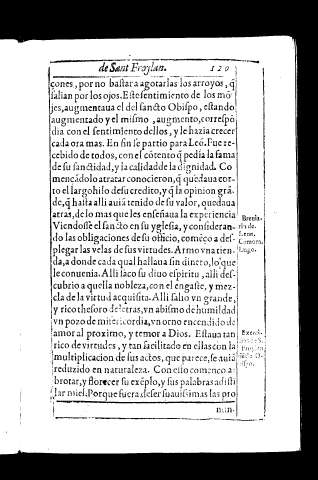 de Sant Froylan. 120
çones, por no bastar a agotarlas los arroyos, q̃
salian por los ojos. Este sentimiento de los mõ
jes, augmentaua el del sancto Obispo, estando
augmentado y el mismo, augmento, correspõ
dia con el sentimiento dellos, y le hazia crecer
cada ora mas. En fin se partio para Leõ. Fue re-
cebido de todos, con el cõtento q̃ pedia la fama
de su sanctidad, y la calidad de la dignidad. Co
mençãdolo a tratar conocieron, q̃ quedaua cor-
to el largo hilo de su credito, y q̃ la opinion grã-
de, q̃ hasta alli auiã tenido de su valor, quedaua
atras, de lo mas que les enseñaua la experiencia
Viendosse el sancto en su yglesia, y consideran-
do las obligaciones de su officio, començo a des-
plegar las velas de sus virtudes. Armo vna tien-
da, a donde cada qual hallaua sin dinero, lo que
le conuenia. Alli saco su diuo espiritu, alli des-
cubrio a quella nobleza, con el engaste, y mez-
cla de la virtud acquisita. Alli salio vn grande,
y rico thesoro de letras, vn abismo de humildad
vn pozo de misericordia, vn orno encendido de
amor al proximo, y temor a Dios. Estaua tan
rico de virtudes, y tan facilitado en ellas con la
multiplicacion de sus actos, que parece, se auiã
reduzido en naturaleza. Con esto començo a
brotar, y florecer su exẽplo, y sus palabras a disti
lar miel. Porque fuera d̃ ser suauissimas las pro
nun-
Breuia-
rio de
Leon,
Camora
Lugo.